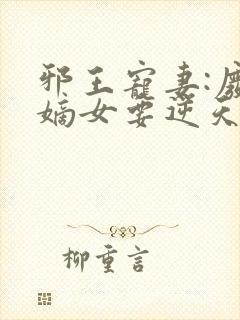 邪王寵妻:廢
嫡女要逆天
柳重言